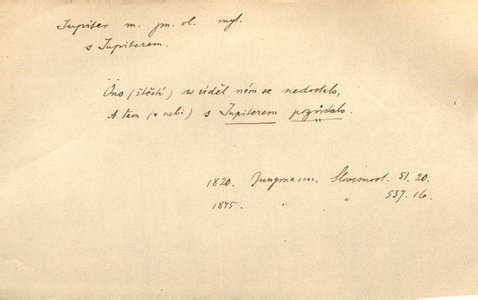 Jupiter m. jm. vl. myt.
s Jupiterem.
Ono (štěstí) v úděl nám se nedostalo,
A tam (v nebi) s Jupiterem pozůstalo.
1820. Jungmann, Slovesnost. 51. 20.
1845. " " 537. 16.